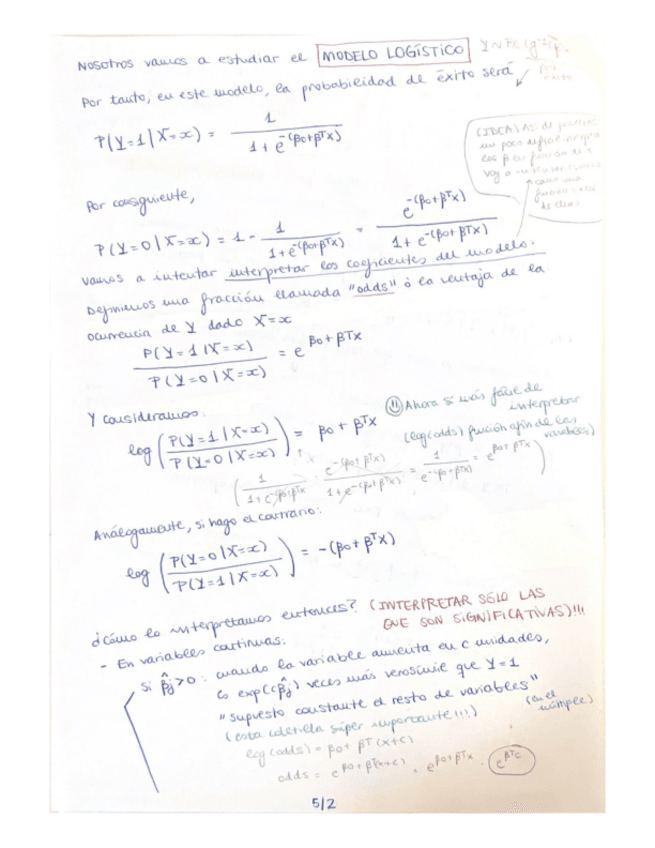 Nosotros vamos a estudiar el MODELO LOGÍSTICO
Por tanto, en este modelo, la probabilidad de éxito será
P(Y=1|X=x) = 1 / (1 + e^-(β0+β^T x))
(IDEA)
Por consiguiente,
P(Y=0|X=x) = 1 - 1 / (1 + e^-(β0+β^T x)) = e^-(β0+β^T x) / (1 + e^-(β0+β^T x))
Vamos a intentar interpretar los coeficientes del modelo.
Definimos una fracción llamada "odds" ó la ventaja de la
ocurrencia de Y dado X=x
P(Y=1|X=x) / P(Y=0|X=x) = e^(β0+β^T x)
Y consideramos:
log (P(Y=1|X=x) / P(Y=0|X=x)) = β0 + β^T x
Ahora sí más fácil de
interpretar
(log(odds) función afín de las
variables)
(1 / (1 + e^-(β0+β^T x)) : e^-(β0+β^T x) / (1 + e^-(β0+β^T x)) = 1 / e^-(β0+β^T x) = e^(β0+β^T x))
Análogamente, si hago el contrario:
log (P(Y=0|X=x) / P(Y=1|X=x)) = -(β0+β^T x)
¿Cómo lo interpretamos entonces? (INTERPRETAR SÓLO LAS
QUE SON SIGNIFICATIVAS)!!!
- En variables continuas:
Si β̂j>0 : cuando la variable aumenta en c unidades,
exp(cβ̂j) veces más verosímil que Y=1
"supuesto constante el resto de variables"
(en el
múltiple)
(esta coletilla súper importante!!!)
log(odds) = β0 + β^T(x+c)
odds = e^(β0+β^T(x+c)) = e^(β0+β^T x) · e^(β^T c)
5/2